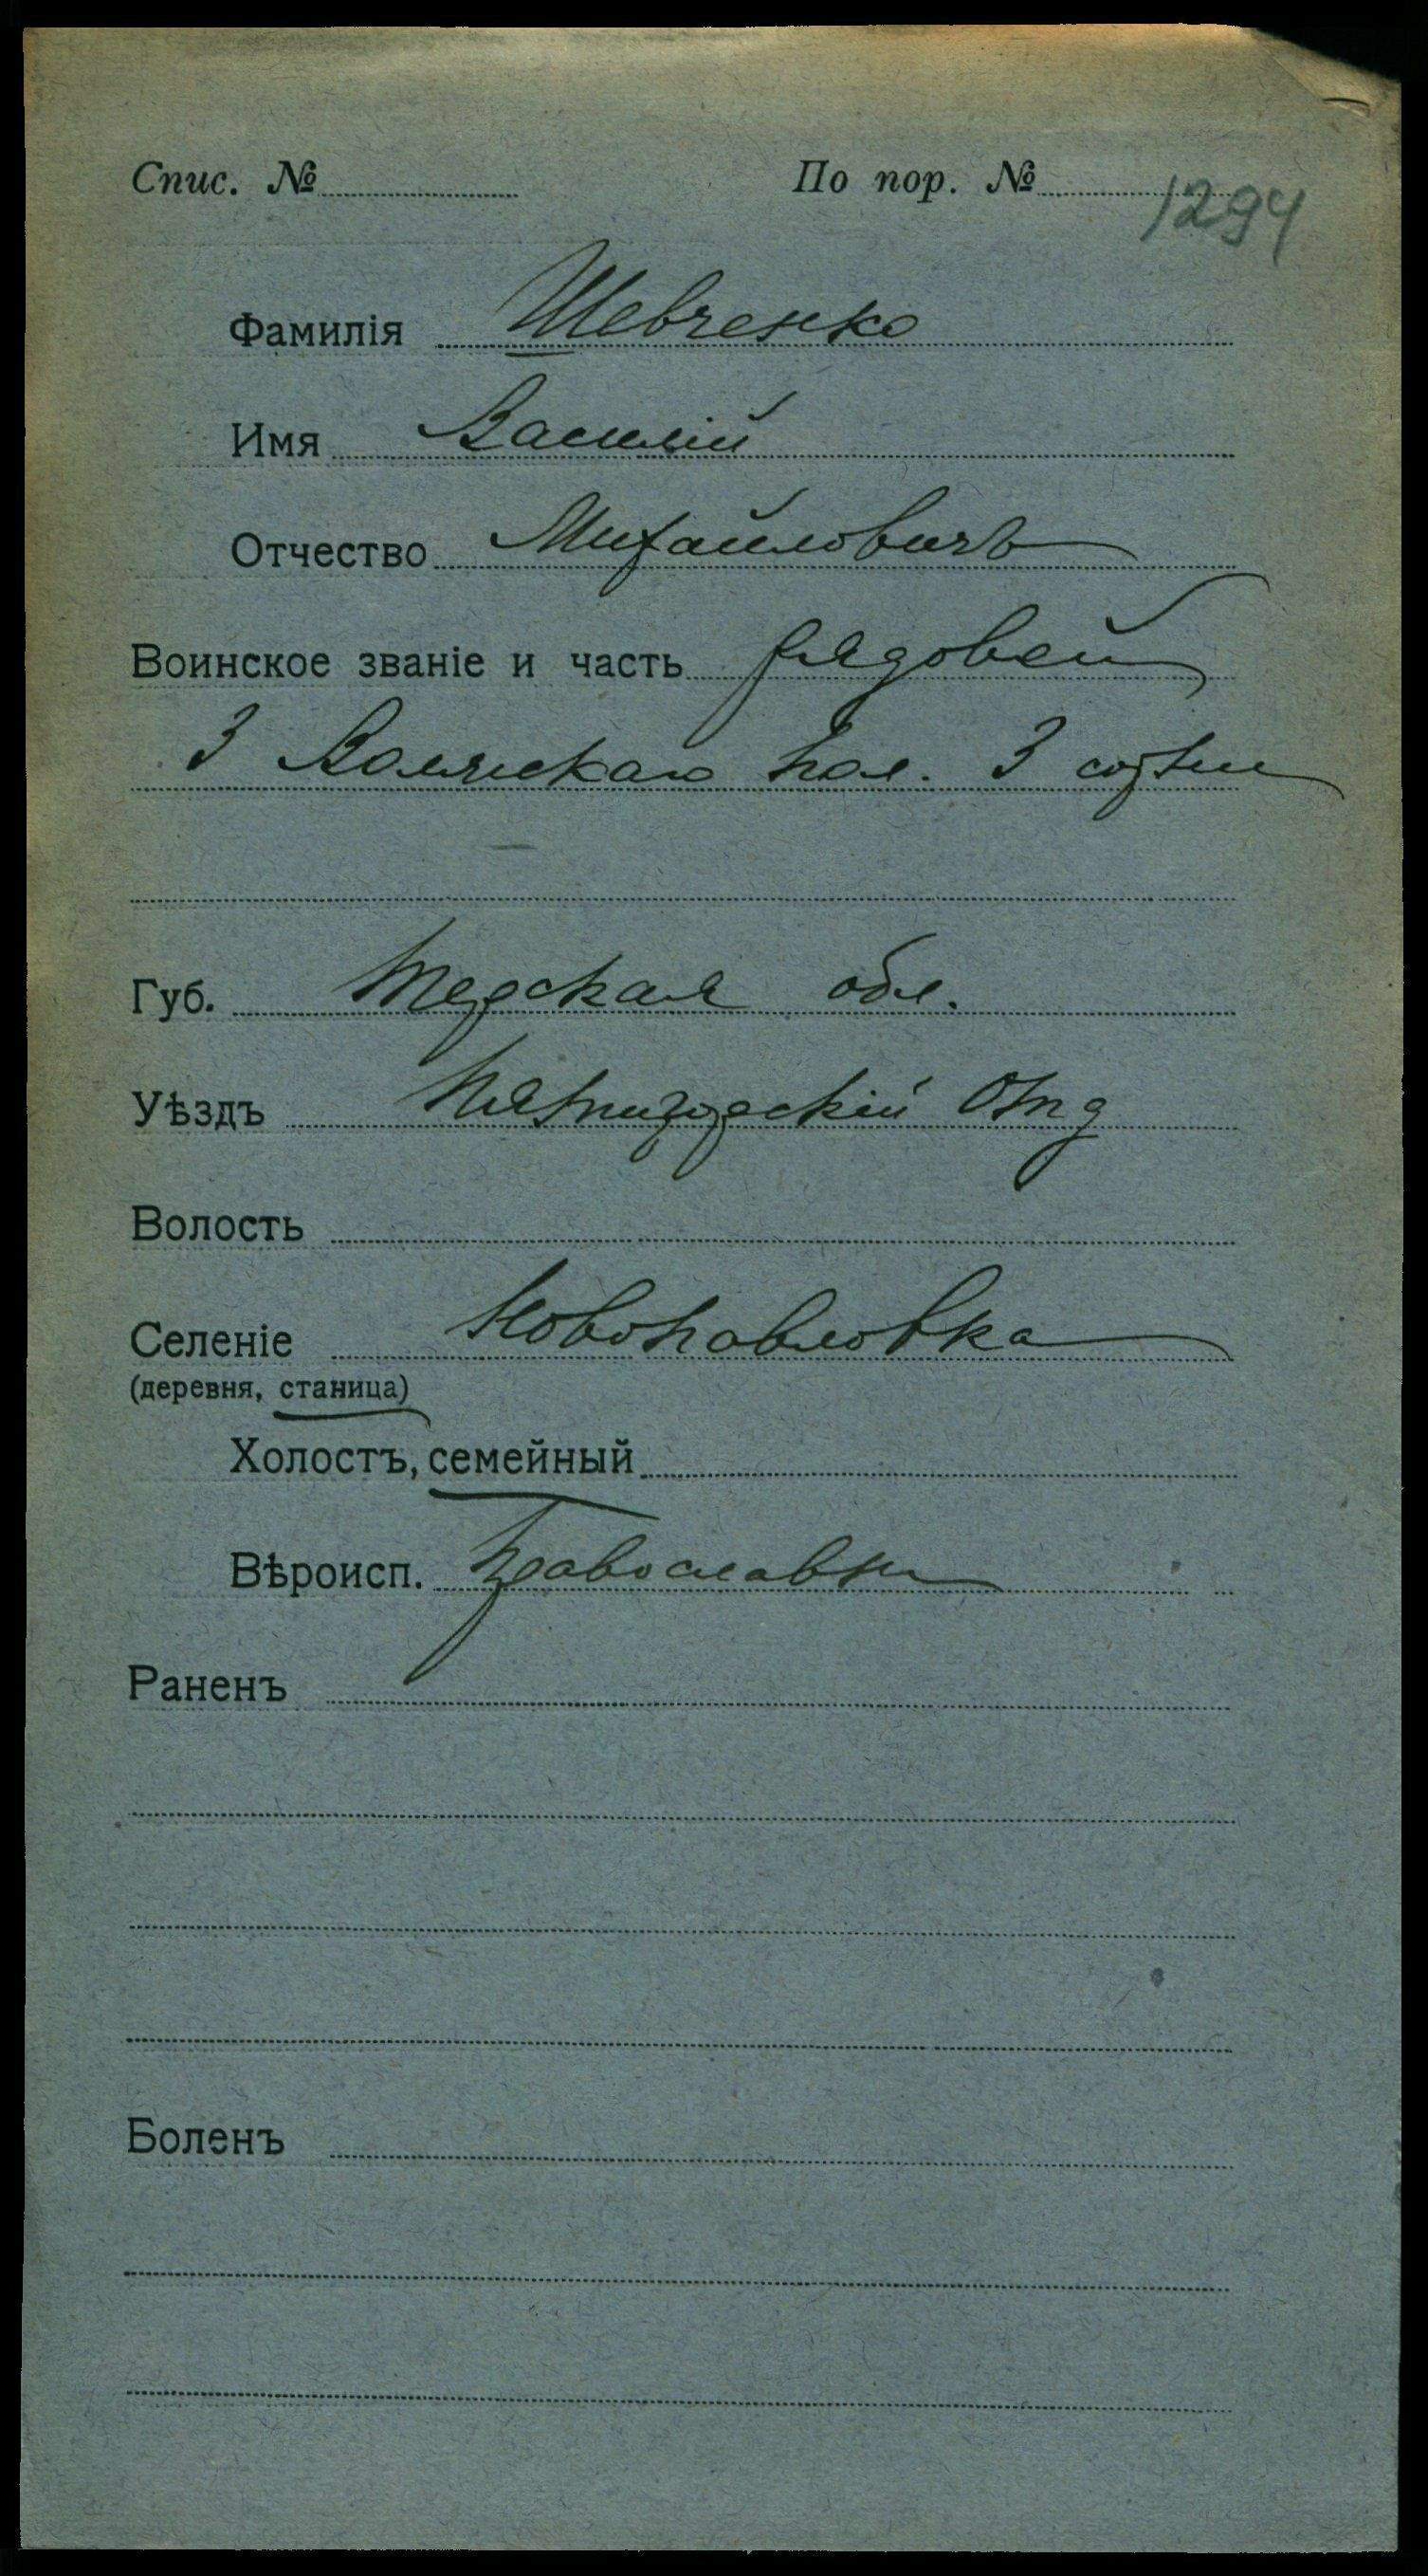 Спис. № По пор. № 1294
Фамилія Шевченко
Имя Василій
Отчество Михайловичъ
Воинское званіе и часть рядовой
3 Волжскаго пол. 3 сотни
Губ. Терская обл.
Уѣздъ Пятигорскій Отд
Волость
Селеніе Новопавловка
(деревня, станица)
Холостъ, семейный
Вѣроисп. Православн
Раненъ
Боленъ